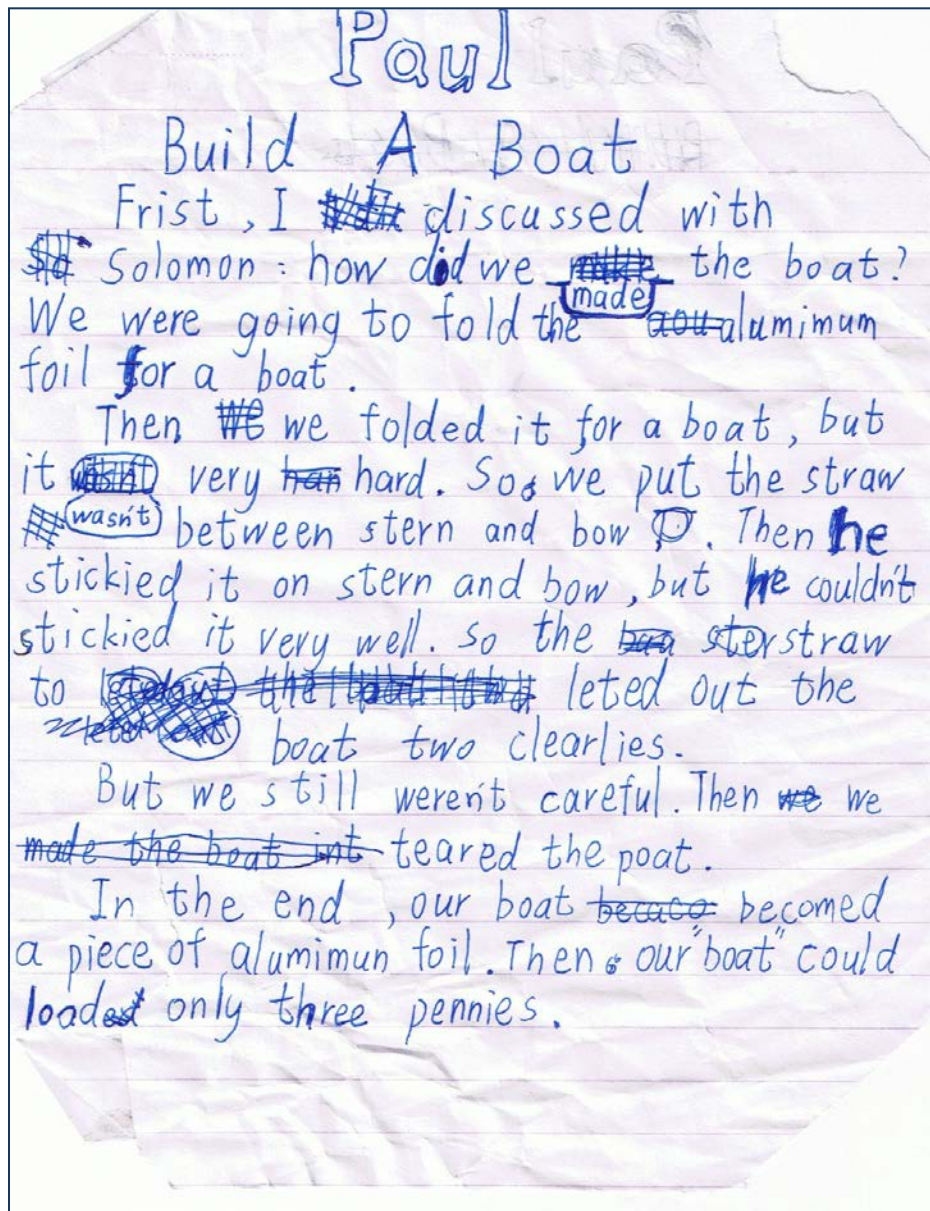 Paul
Build A Boat
Frist, I discussed with
Solomon: how did we made the boat?
We were going to fold the alumimum
foil for a boat.
Then we folded it for a boat, but
it wasn't very hard. So we put the straw
between stern and bow. Then he
stickied it on stern and bow, but he couldn't
stickied it very well. so the straw
to leted out the
boat two clearlies.
But we still weren't careful. Then we
teared the poat.
In the end, our boat becomed
a piece of alumimun foil. Then our "boat" could
load only three pennies.